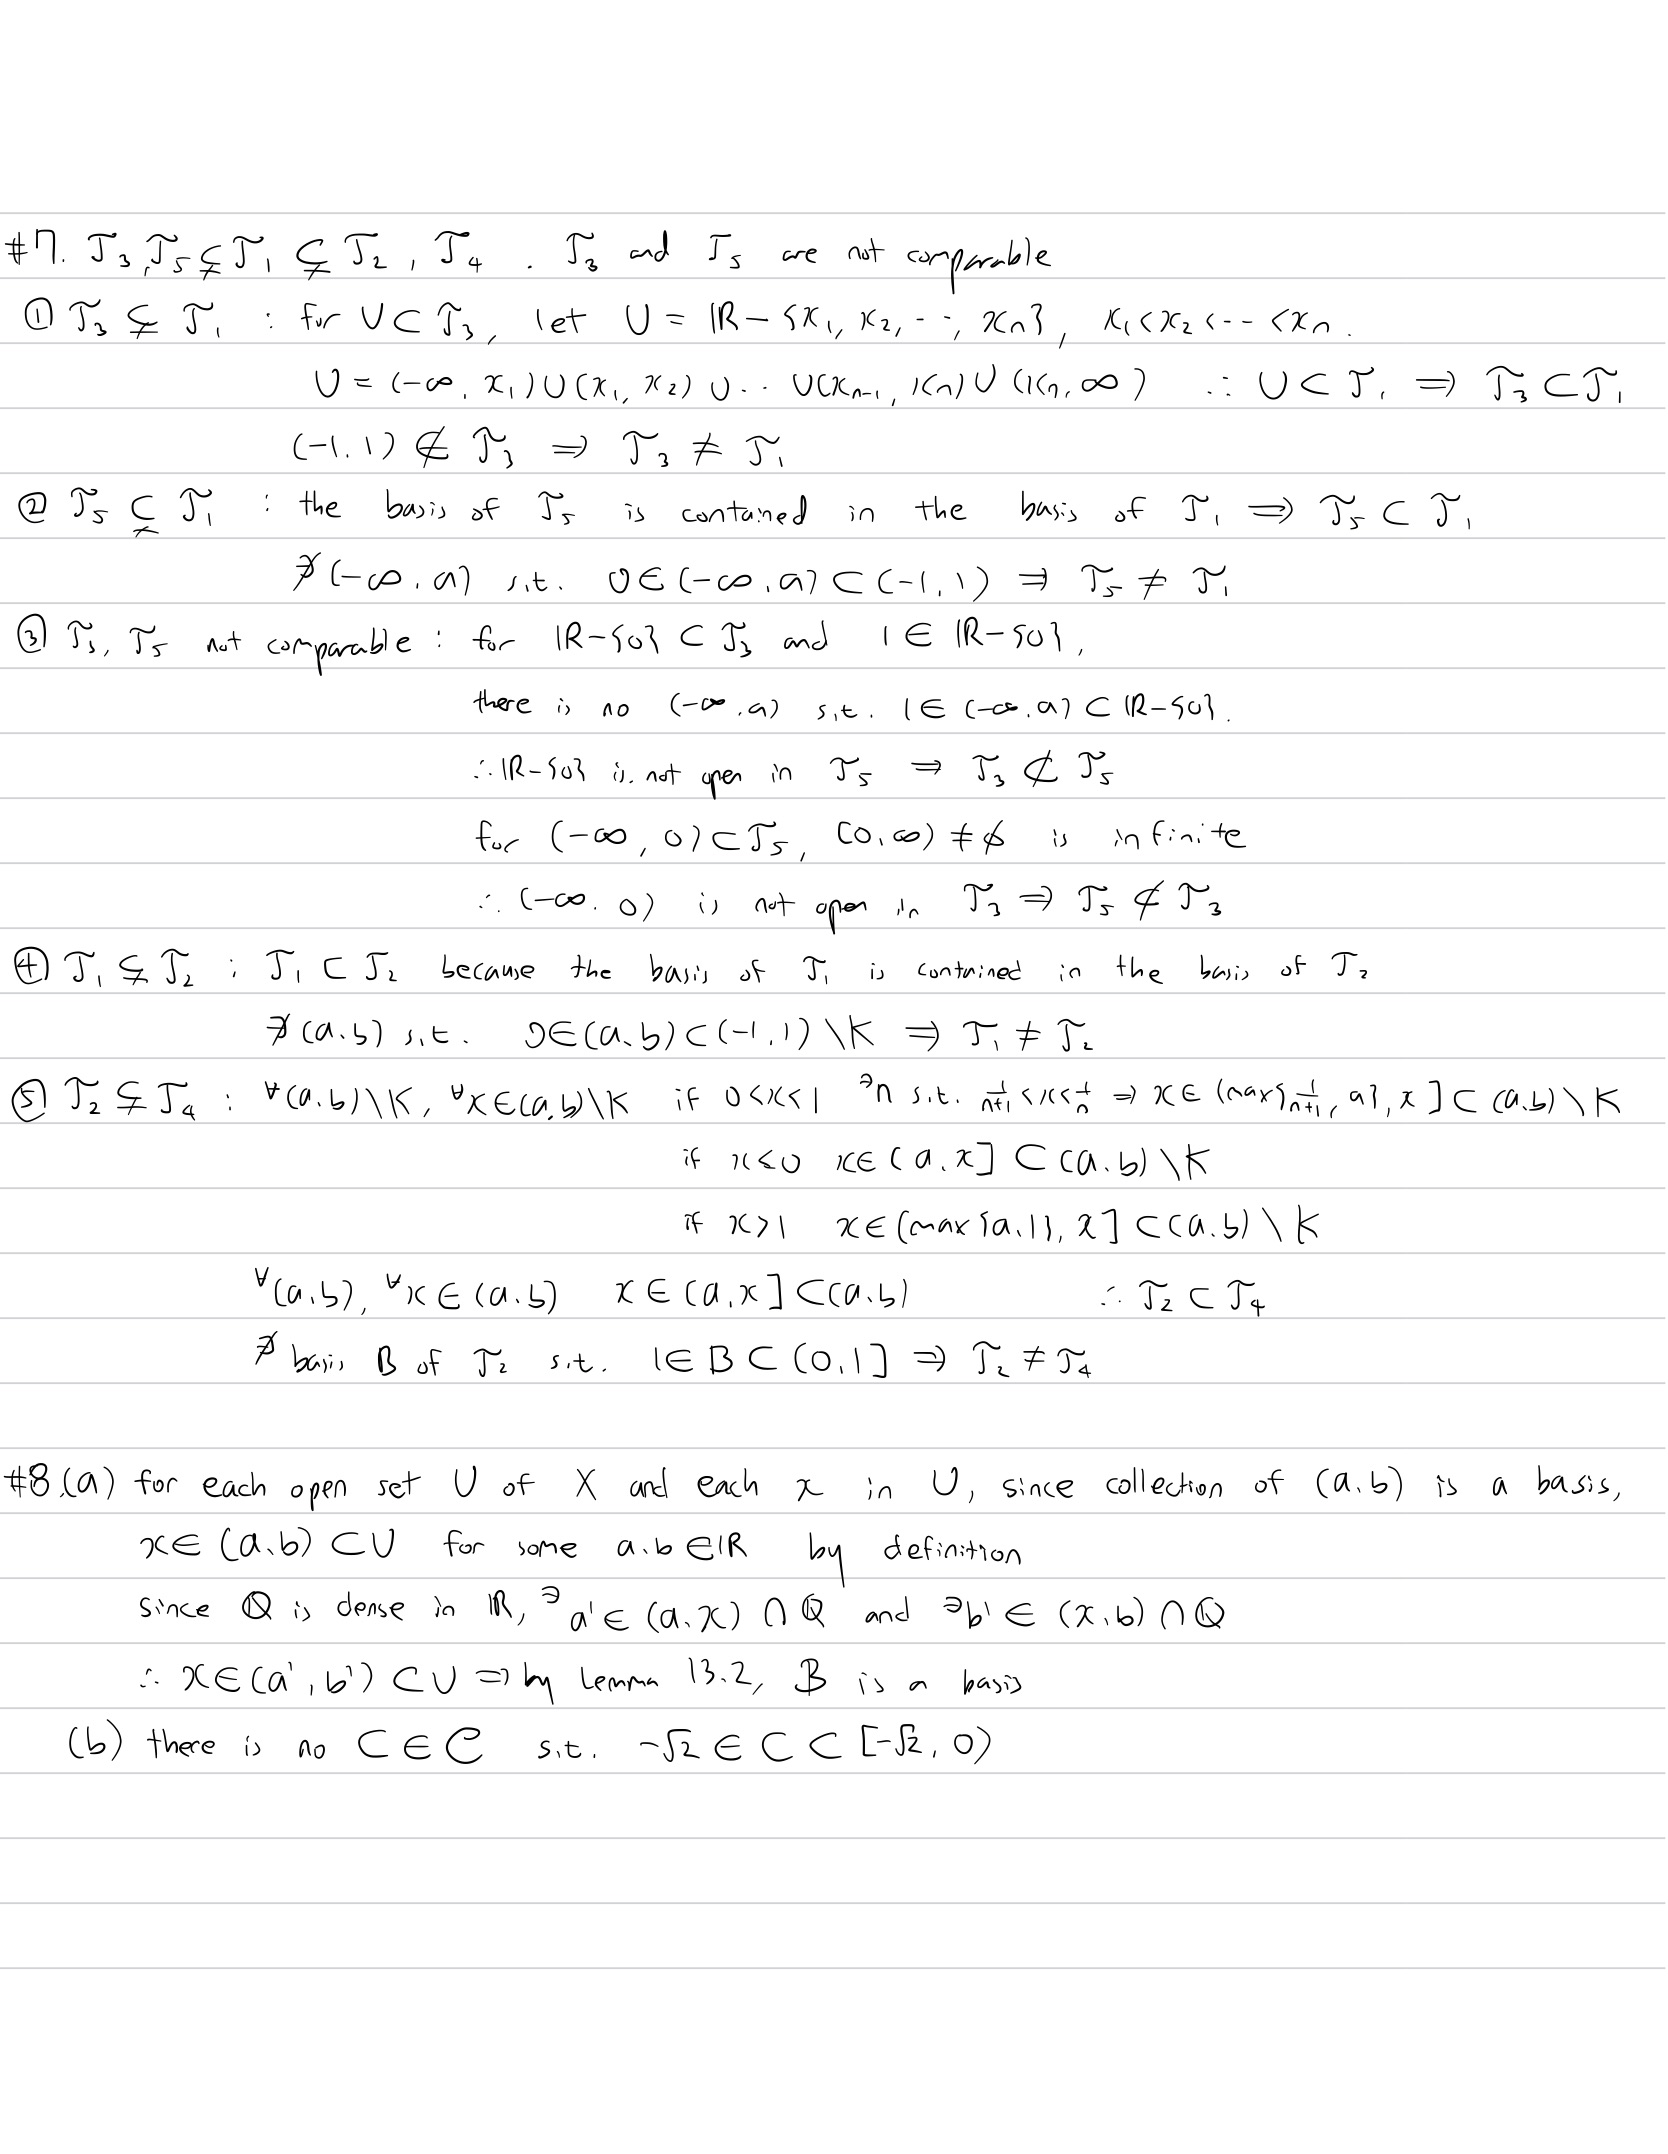 #7. 𝒯₃, 𝒯₅ ⊊ 𝒯₁ ⊊ 𝒯₂, 𝒯₄. 𝒯₃ and 𝒯₅ are not comparable
① 𝒯₃ ⊊ 𝒯₁ : for U ⊂ 𝒯₃, let U = ℝ-{x₁, x₂, --, xₙ}, x₁<x₂<--<xₙ.
U = (-∞, x₁)∪(x₁, x₂) ∪-- ∪(xₙ₋₁, xₙ)∪(xₙ, ∞) ∴ U ⊂ 𝒯₁ ⇒ 𝒯₃ ⊂ 𝒯₁
(-1,1) ∉ 𝒯₃ ⇒ 𝒯₃ ≠ 𝒯₁
② 𝒯₅ ⊊ 𝒯₁ : the basis of 𝒯₅ is contained in the basis of 𝒯₁ ⇒ 𝒯₅ ⊂ 𝒯₁
∄(-∞, a) s.t. 0∈(-∞, a) ⊂ (-1, 1) ⇒ 𝒯₅ ≠ 𝒯₁
③ 𝒯₃, 𝒯₅ not comparable : for ℝ-{0} ⊂ 𝒯₃ and 1 ∈ ℝ-{0},
there is no (-∞, a) s.t. 1∈ (-∞, a) ⊂ ℝ-{0}.
∴ ℝ-{0} is not open in 𝒯₅ ⇒ 𝒯₃ ⊄ 𝒯₅
for (-∞, 0) ⊂ 𝒯₅, [0, ∞) ≠ ∅ is infinite
∴ (-∞, 0) is not open in 𝒯₃ ⇒ 𝒯₅ ⊄ 𝒯₃
④ 𝒯₁ ⊊ 𝒯₂ : 𝒯₁ ⊂ 𝒯₂ because the basis of 𝒯₁ is contained in the basis of 𝒯₂
∄(a,b) s.t. 0∈(a,b) ⊂ (-1,1) \K ⇒ 𝒯₁ ≠ 𝒯₂
⑤ 𝒯₂ ⊊ 𝒯₄ : ∀(a,b)\K, ∀x∈(a,b)\K if 0<x<1 ∃n s.t. 1/(n+1) < x < 1/n ⇒ x∈ (max{1/(n+1), a}, x] ⊂ (a,b) \ K
if x≤0 x∈ (a,x] ⊂ (a,b) \K
if x>1 x∈(max{a,1}, x] ⊂ (a,b) \ K
∀(a,b), ∀x∈(a,b) x∈(a,x] ⊂(a,b) ∴ 𝒯₂ ⊂ 𝒯₄
∄ basis B of 𝒯₂ s.t. 1∈B⊂(0,1] ⇒ 𝒯₂ ≠ 𝒯₄
#8.(a) for each open set U of X and each x in U, since collection of (a,b) is a basis,
x∈ (a,b) ⊂U for some a,b∈ℝ by definition
since ℚ is dense in ℝ, ∃a'∈ (a,x) ∩ ℚ and ∃b'∈ (x,b) ∩ℚ
∴ x∈(a', b') ⊂U ⇒ by Lemma 13.2, ℬ is a basis
(b) there is no C∈𝒞 s.t. -√2 ∈ C ⊂ [-√2, 0)